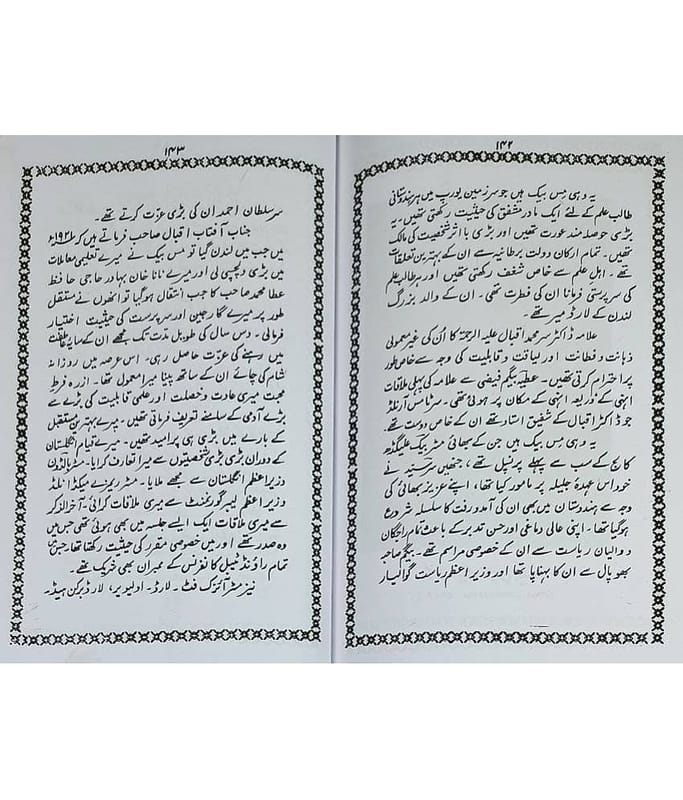 ۱۴۲
یہ وہی مِس بیک ہیں جو سرزمینِ یورپ میں ہر ہندوستانی
طالب علم کے لئے ایک مادرِ مشفق کی حیثیت رکھتی تھیں۔ یہ
بڑی حوصلہ مند عورت تھیں اور بڑی با اثر شخصیت کی مالک
تھیں۔ تمام ارکانِ دولتِ برطانیہ سے ان کے بہترین تعلقات
تھے۔ اہلِ علم سے خاص شغف رکھتی تھیں اور ہر طالب علم
کی سرپرستی فرمانا ان کی فطرت تھی۔ ان کے والد بزرگ
لندن کے لارڈ میر تھے۔
علامہ ڈاکٹر سر محمد اقبال علیہ الرحمۃ کا اُن کی غیر معمولی
ذہانت و فطانت اور لیاقت و قابلیت کی وجہ سے خاص طور
پر احترام کرتی تھیں۔ عطیہ بیگم فیضی سے علامہ کی پہلی ملاقات
انہی کے ذریعہ انہی کے مکان پر ہوئی تھی۔ سر ٹامس آرنلڈ
جو ڈاکٹر اقبال کے شفیق استاد تھے ان کے خاص دوست تھے۔
یہ وہی مس بیک ہیں جن کے بھائی مسٹر بیک علیگڈھ
کالج کے سب سے پہلے پرنسپل تھے، جنھیں سرسید نے
خود اس عہدۂ جلیلہ پر مامور کیا تھا، اپنے عزیز بھائی کی
وجہ سے ہندوستان میں بھی ان کی آمد و رفت کا سلسلہ شروع
ہوگیا تھا۔ اپنی عالی دماغی اور حسنِ تدبر کے باعث تمام راجگان
و والیانِ ریاست سے ان کے خصوصی مراسم تھے۔ بیگم صاحبہ
بھوپال سے ان کا بہناپا تھا اور وزیر اعظم ریاست گوالیار
۱۴۳
سر سلطان احمد ان کی بڑی عزّت کرتے تھے۔
جناب آفتاب اقبال صاحب فرماتے ہیں کہ ۱۹۲۱ء
میں جب میں لندن گیا تو مس بیک نے میرے تعلیمی معاملات
میں بڑی دلچسپی لی اور میرے نانا خان بہادر حاجی حافظ
عطا محمد صاحب کا جب انتقال ہوگیا تو انھوں نے مستقل
طور پر میرے گارجین اور سرپرست کی حیثیت اختیار
فرمالی۔ دس سال کی طویل مدت تک مجھے ان کے سایۂ عاطفت
میں رہنے کی عزّت حاصل رہی۔ اس عرصہ میں روزانہ
شام کی چائے ان کے ساتھ پینا میرا معمول تھا۔ از رہ فرطِ
محبت میری عادت و خصلت اور علمی قابلیت کی بڑے سے
بڑے آدمی کے سامنے تعریف فرماتی تھیں۔ میرے بہترین مستقبل
کے بارے میں بڑی ہی پر امید تھیں۔ میرے قیام انگلستان
کے دوران بڑی بڑی شخصیتوں سے میرا تعارف کرایا۔ مسٹر بالڈون
وزیر اعظم انگلستان سے مجھے ملایا۔ مسٹر ریمزے میکڈانلڈ
وزیر اعظم لیبر گورنمنٹ سے میری ملاقات کرائی، آخر الذکر
سے میری ملاقات ایک ایسے جلسہ میں بھی ہوئی تھی جس میں
وہ صدر تھے اور میں خصوصی مقرر کی حیثیت رکھتا تھا، جس میں
تمام راؤنڈ ٹیبل کانفرنس کے ممبران بھی شریک تھے۔
نیز مسٹر آئزک فٹ۔ لارڈ۔ اولیویر، لارڈ برکن ہیڈ۔